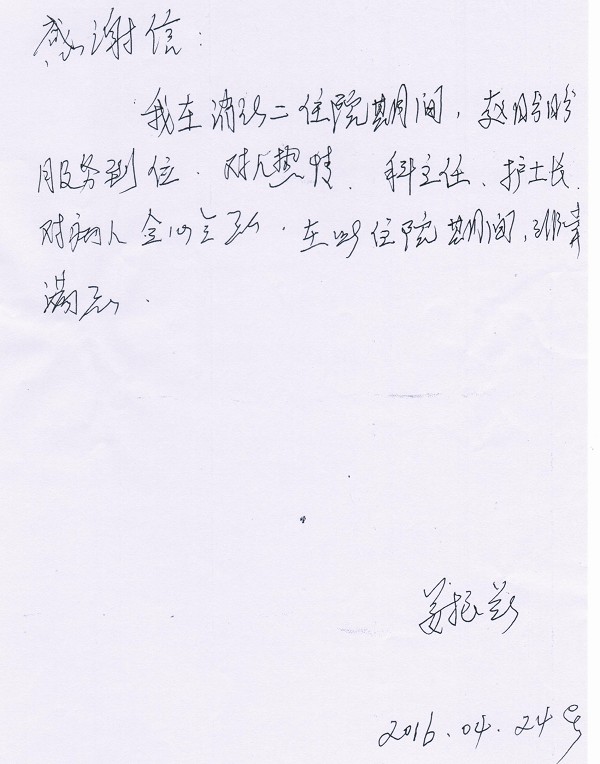 感谢信:
我在消化二住院期间,赵盼盼
服务到位.对人热情.科主任、护士长
对病人全心全意.在此住院期间,非常
满意.
姜振
2016.04.24号